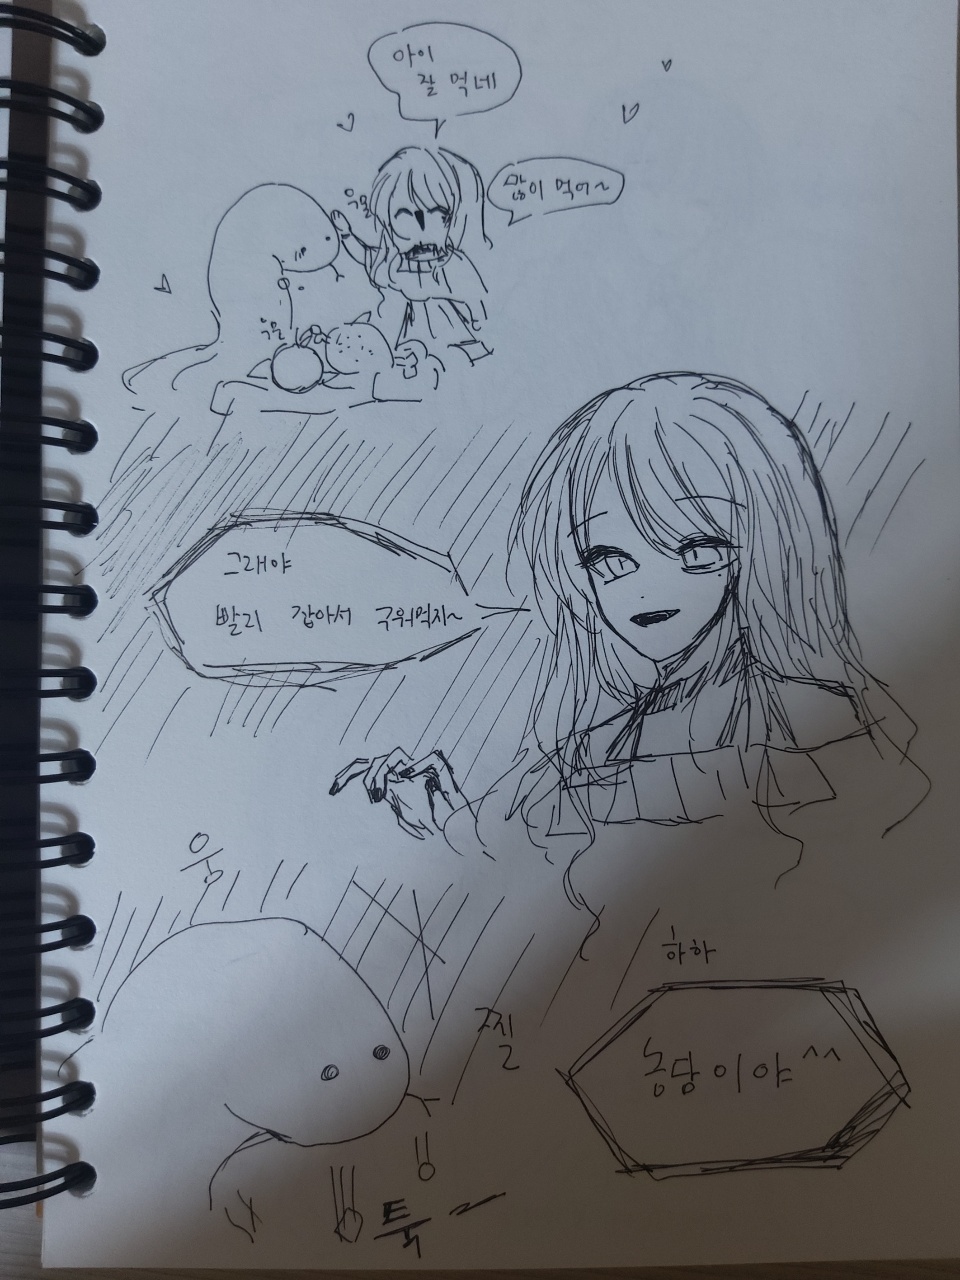 아이
잘 먹네
많이 먹어~
우물
우물
그래야
빨리 잡아서 구워먹지~
움
찔
하하
농담이야 ^^
툭